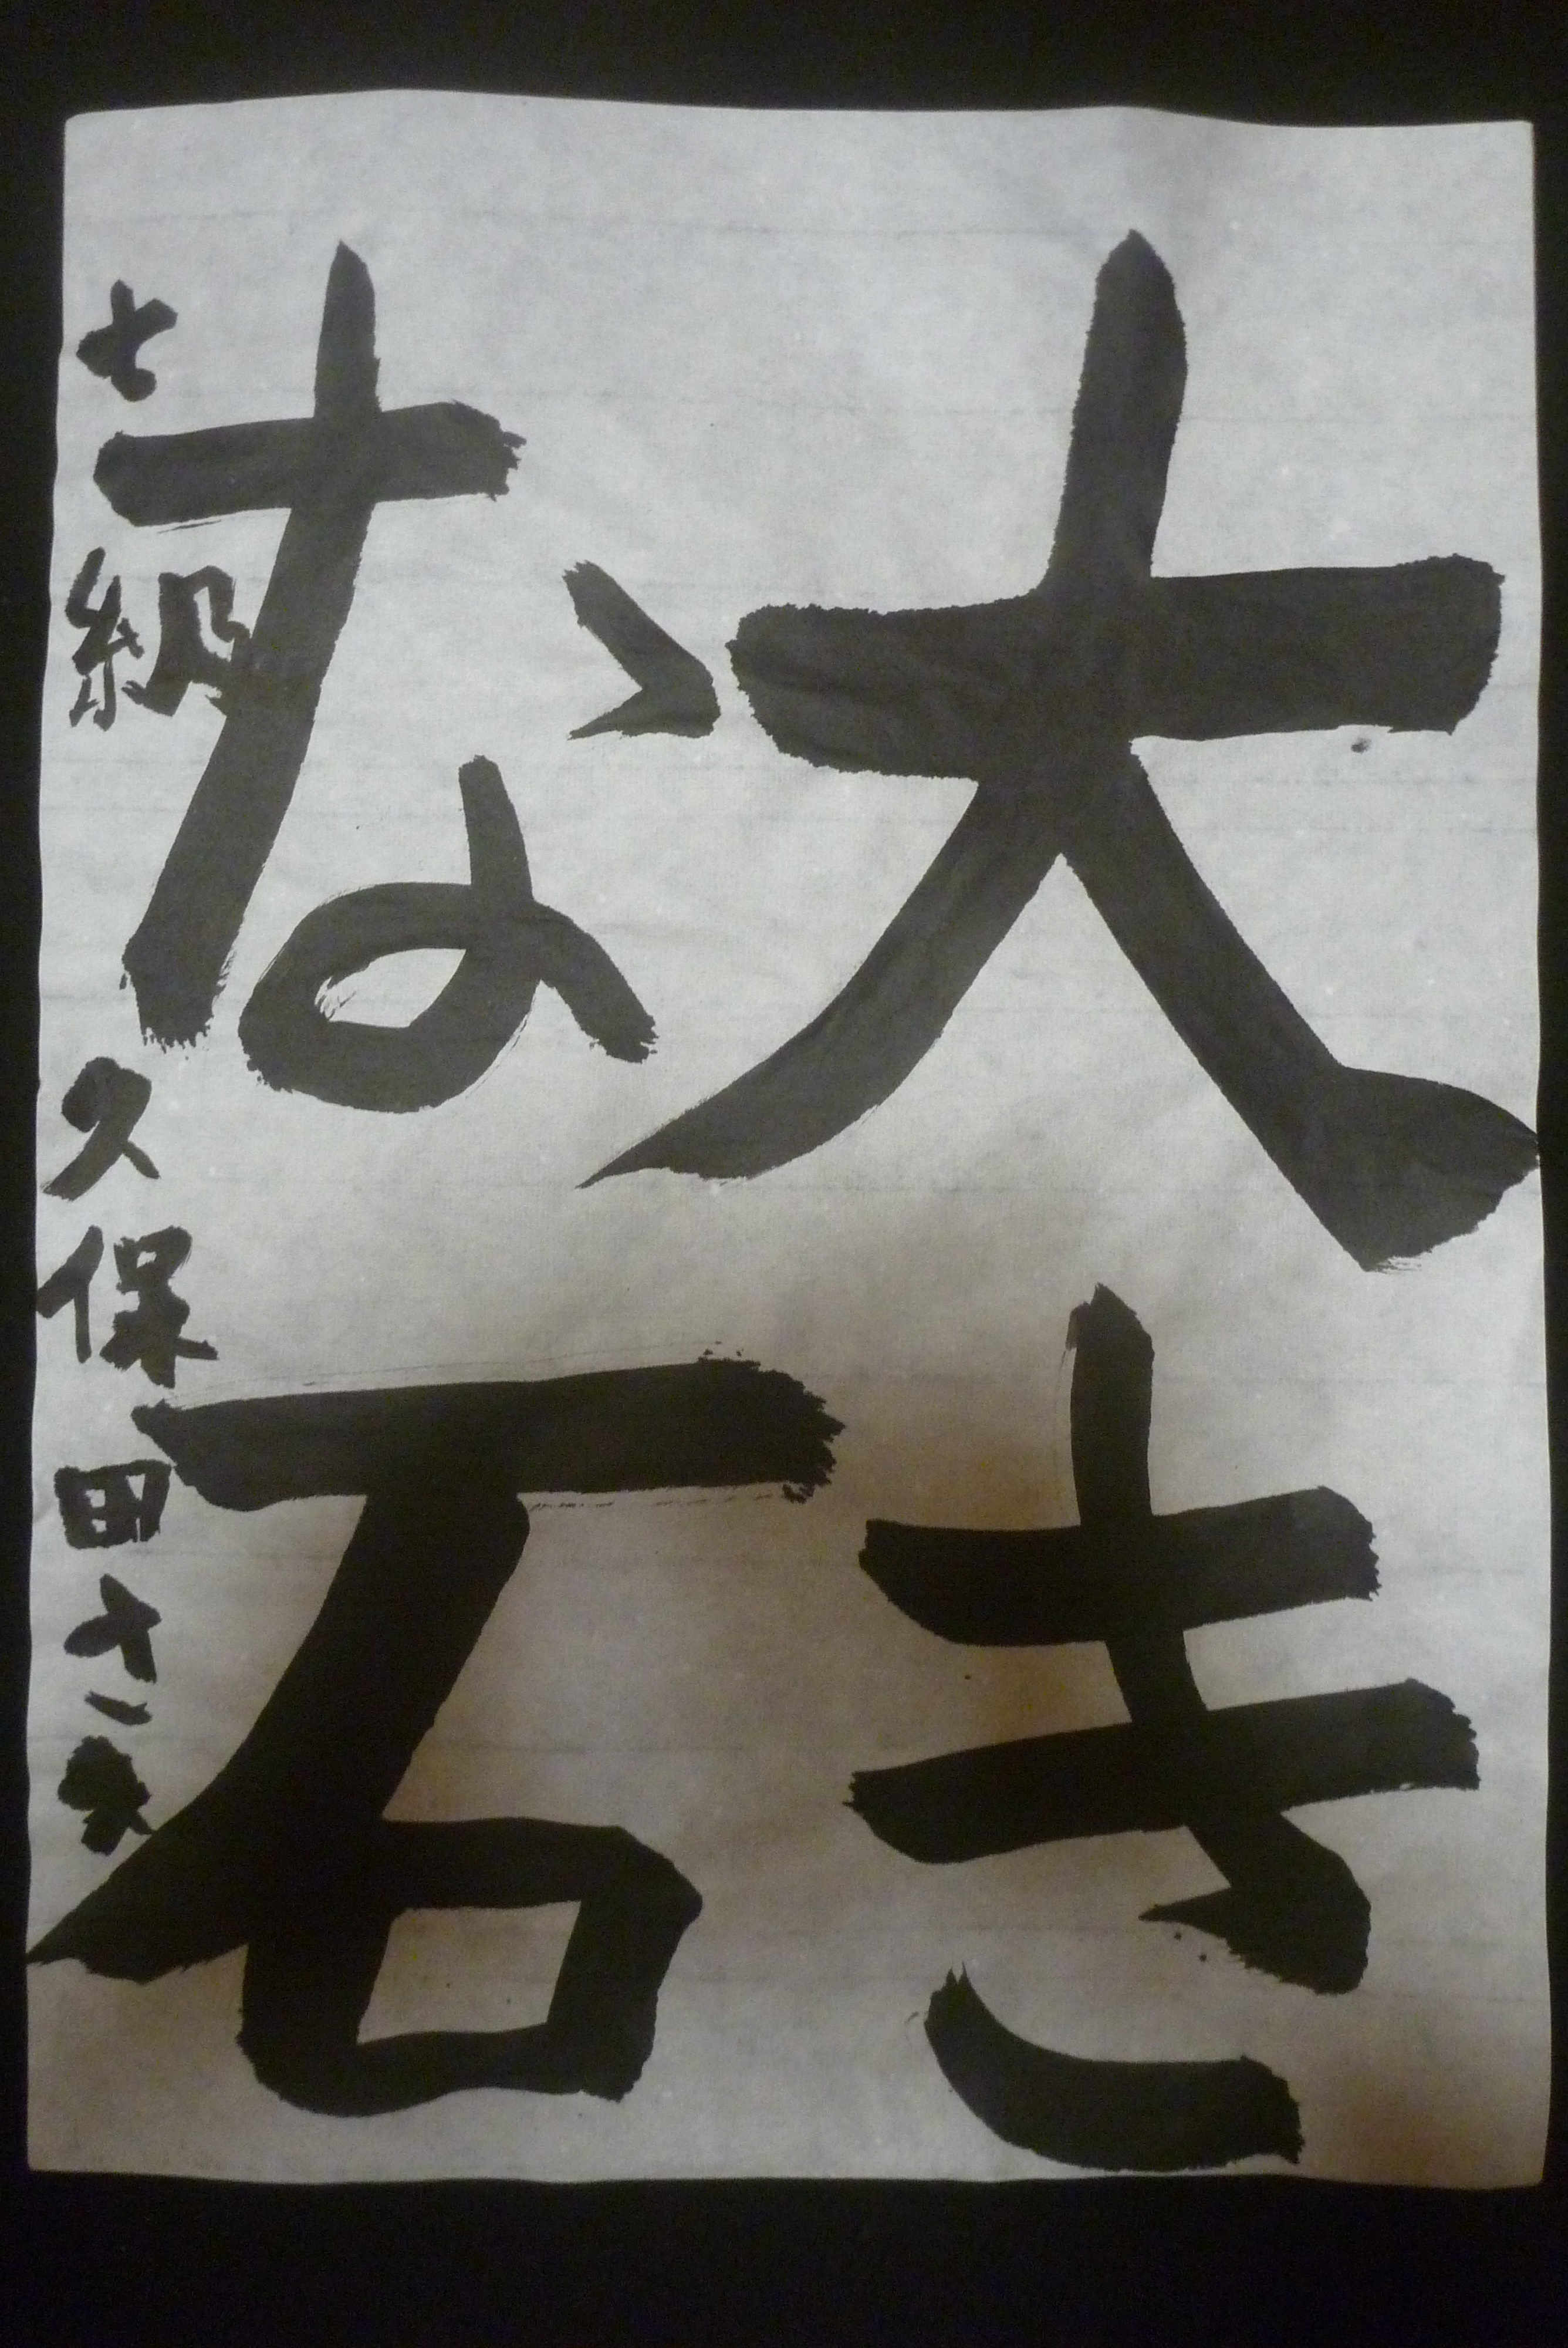 大き
な石
七級 久保田